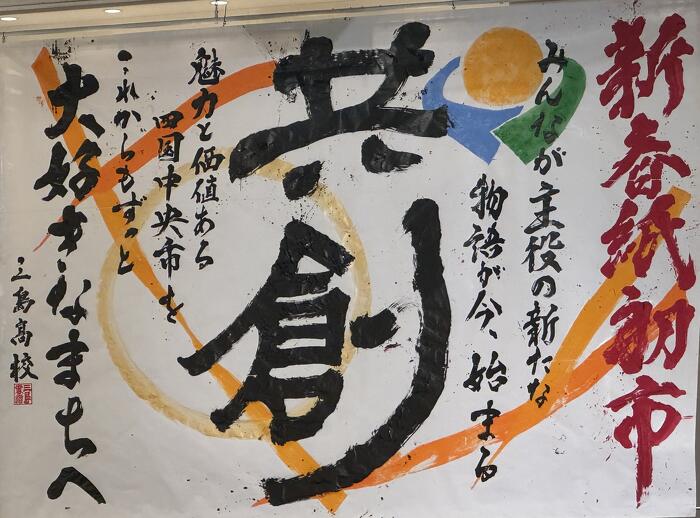 新春紙初市
みんなが主役の新たな
物語が今、始まる
共創
魅力と価値ある
四国中央市を
これからもずっと
大好きなまちへ
三島高校